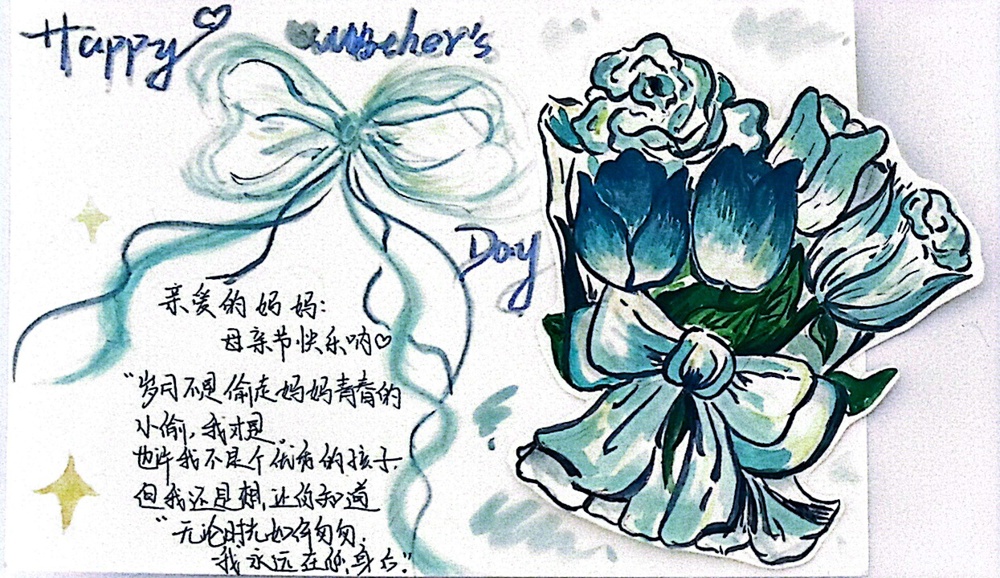 Happy Mother's
Day
亲爱的妈妈:
母亲节快乐呐♡
"岁月不是偷走妈妈青春的
小偷,我才是"
也许我不是个优秀的孩子,
但我还是想让你知道
"无论时光如何匆匆,
我永远在你身后"